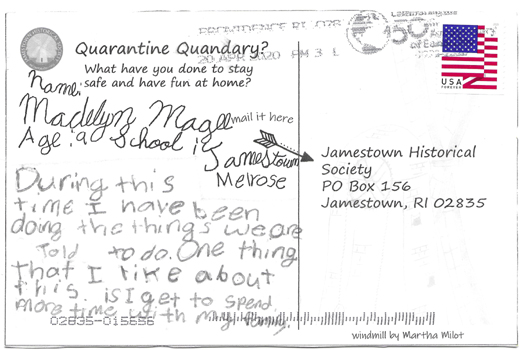 PROVIDENCE RI 028
20 APR 2020 PM 3 L
50
USA
FOREVER
Quarantine Quandary?
What have you done to stay
safe and have fun at home?
Name:
Madelyn Magee
mail it here
Age School
Jamestown
Melrose
Jamestown Historical
Society
PO Box 156
Jamestown, RI 02835
During this
time I have been
doing the things we are
Told to do. One thing
that I like about
this is I get to spend
more time with my family.
02835-015656
windmill by Martha Milot